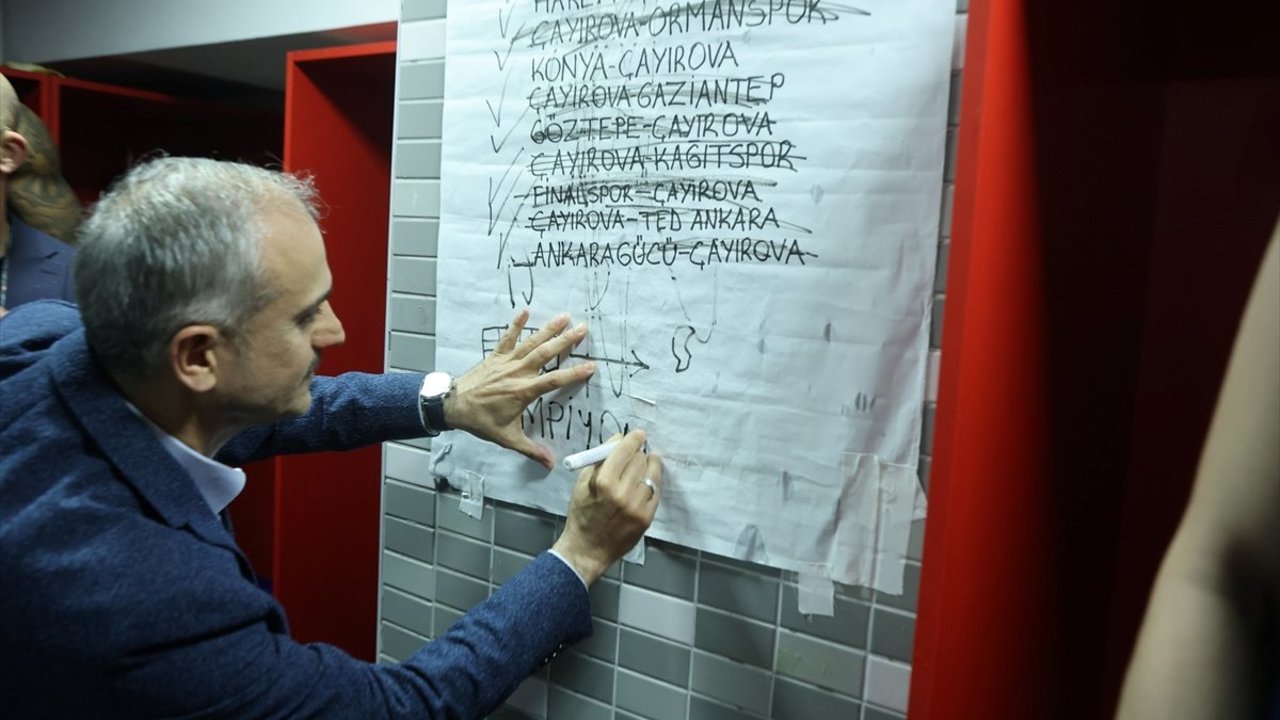 ÇAYIROVA-ORMANSPOR
KONYA-ÇAYIROVA
ÇAYIROVA-GAZİANTEP
GÖZTEPE-ÇAYIROVA
ÇAYIROVA-KAGITSPOR
FİNALSPOR-ÇAYIROVA
ÇAYIROVA-TED ANKARA
ANKARAGÜCÜ-ÇAYIROVA